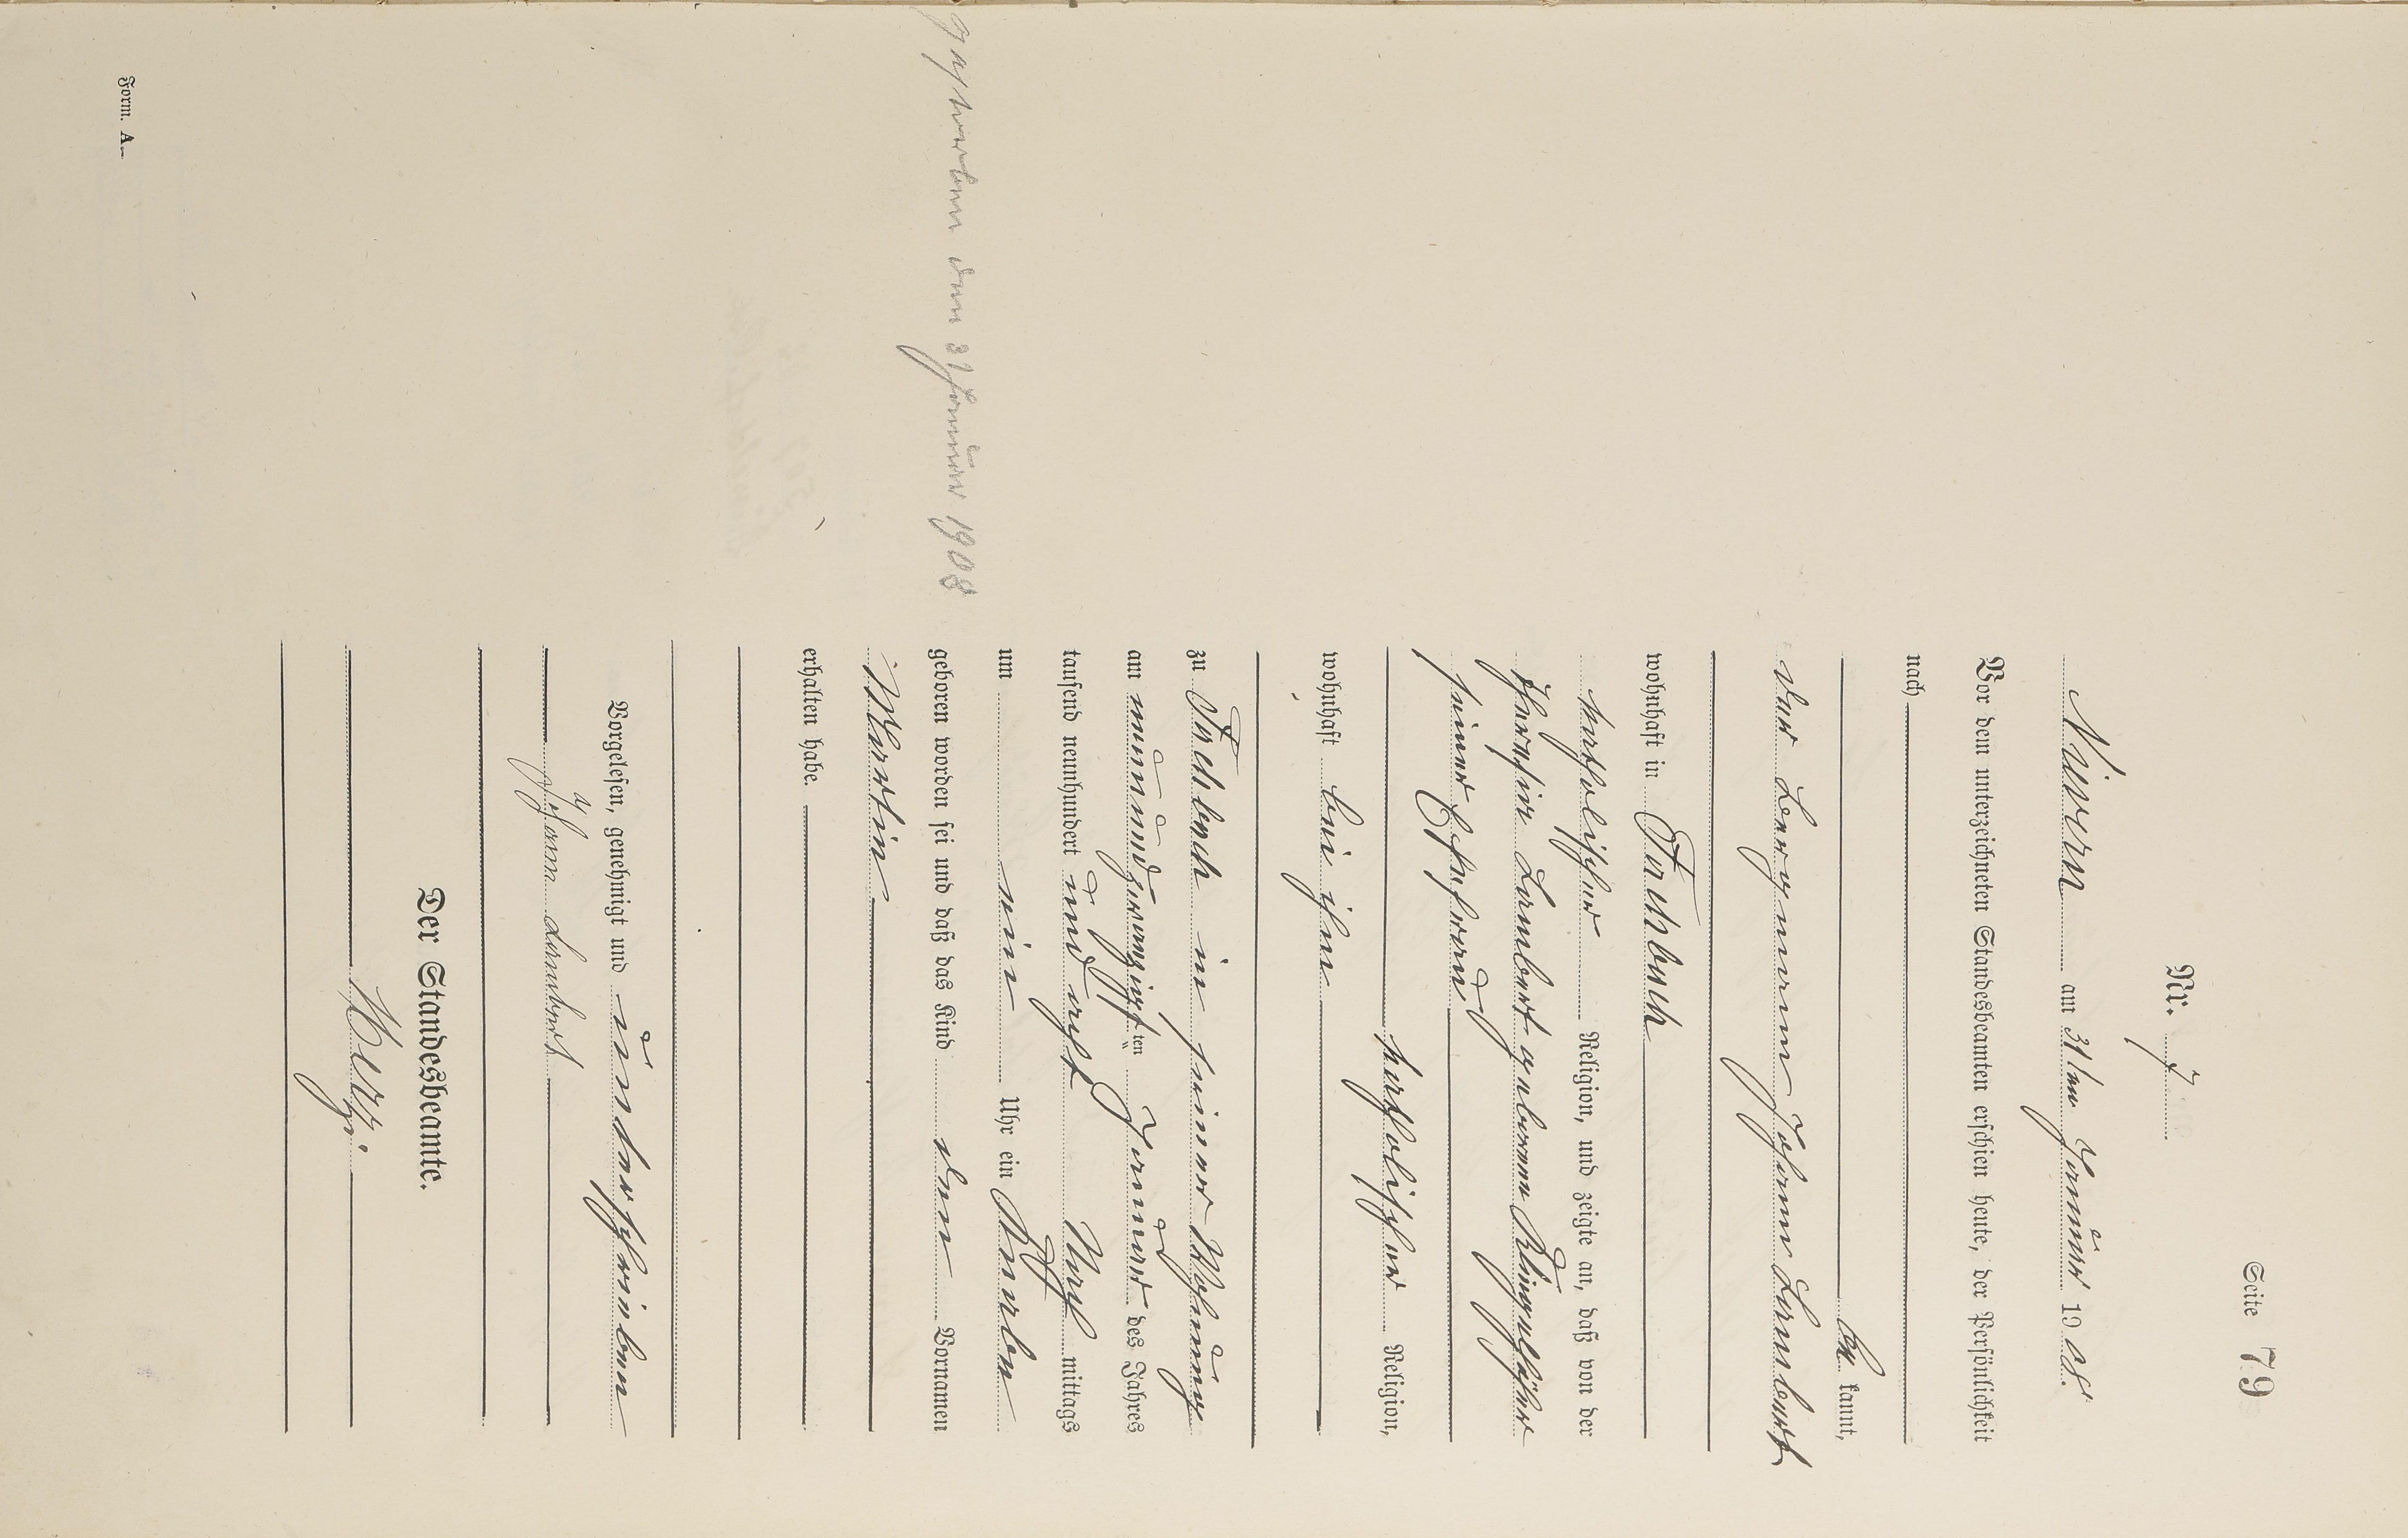 Seite 79
Nr. 7
Nievern am 31ten Januar 1908.
Vor dem unterzeichneten Standesbeamten erschien heute, der Persönlichkeit
nach
be kannt,
der Bergmann Johann Lambert
wohnhaft in Fachbach
katholischer Religion, und zeigte an, daß von der
Lambert geborene
seiner Ehefrau
katholischer Religion,
wohnhaft bei ihm
zu Fachbach in seiner Wohnung
am neunundzwanzigsten Januar des Jahres
tausend neunhundert und acht Nach mittags
um ein Uhr ein Knabe
geboren worden sei und daß das Kind den Vornamen
Martin
erhalten habe.
Vorgelesen, genehmigt und unterschrieben
Johann Lambert
Der Standesbeamte.
gestorben den 31 Januar 1908
Form. A.